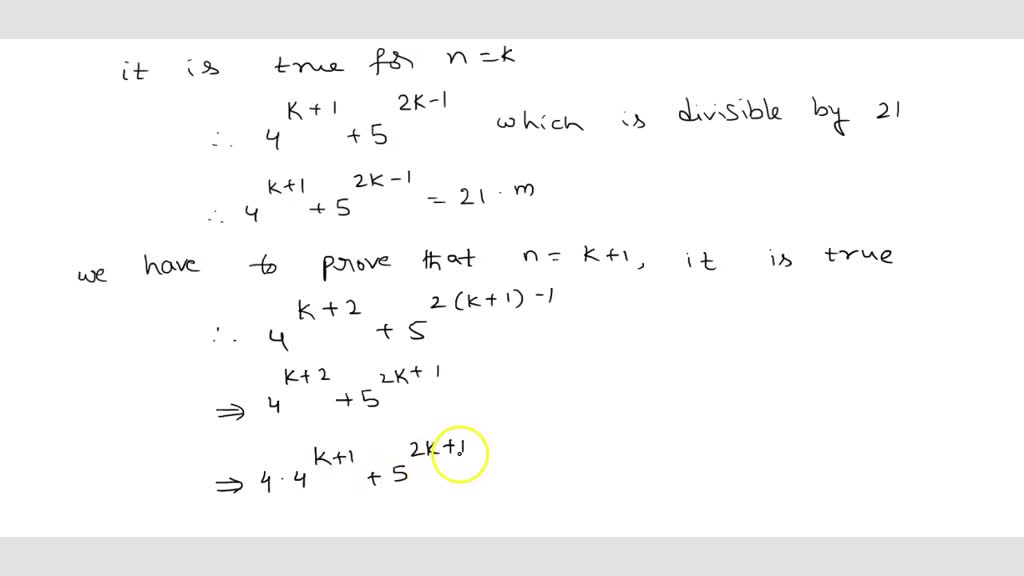 it is true for n = k
∴ 4^{k+1} + 5^{2k-1} which is divisible by 21
∴ 4^{k+1} + 5^{2k-1} = 21 · m
we have to prove that n = k+1, it is true
∴ 4^{k+2} + 5^{2(k+1)-1}
⇒ 4^{k+2} + 5^{2k+1}
⇒ 4 · 4^{k+1} + 5^{2k+1}